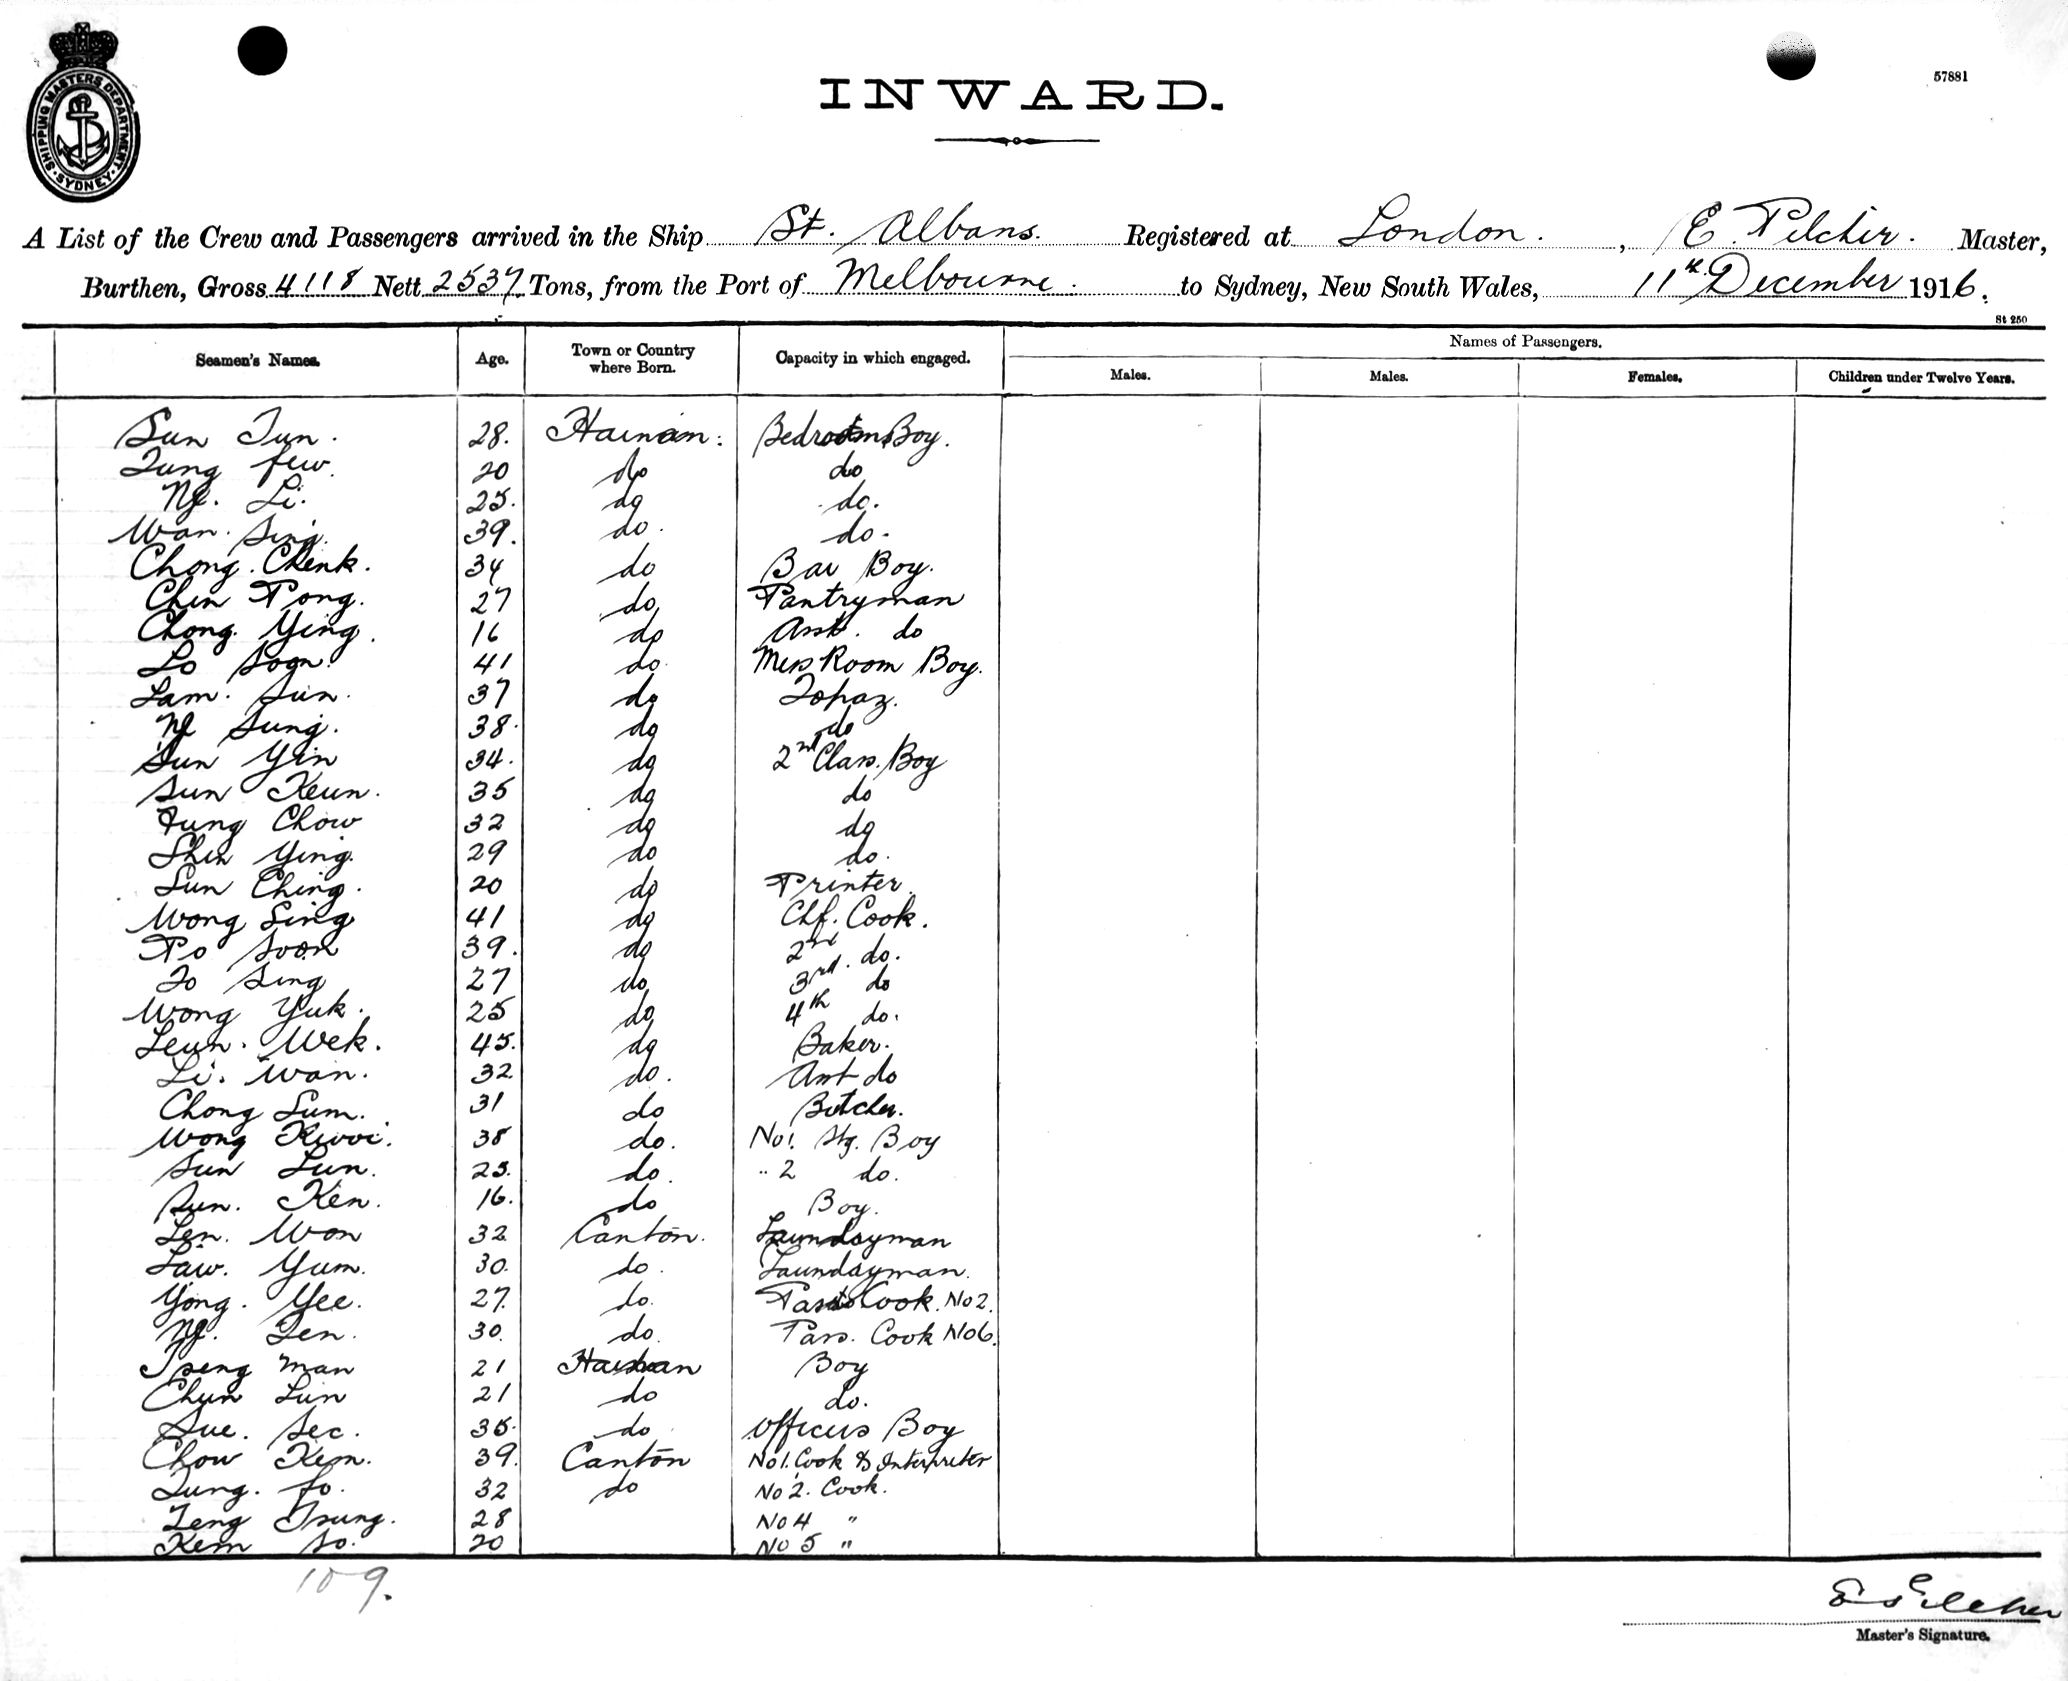 SHIPPING MASTERS DEPARTMENT · SYDNEY ·
57881
INWARD.
A List of the Crew and Passengers arrived in the Ship St. Albans. Registered at London. , E. Pilcher. Master,
Burthen, Gross 4118 Nett 2537 Tons, from the Port of Melbourne. to Sydney, New South Wales, 11th December 1916.
St 250
Seamen's Names. Age. Town or Country where Born. Capacity in which engaged. Names of Passengers.
Males. Males. Females. Children under Twelve Years.
Sun Tun. 28. Hainan: Bedroom Boy.
Tung few. 20 do do
Ng. Li. 25. do do.
Wan. Sing. 39. do. do.
Chong. Chenk. 34 do Bar Boy.
Chin Pong. 27 do Pantryman
Chong. Ying. 16 do Asst. do
Lo Soon. 41 do. Mess Room Boy.
Lam. Sun. 37 do Topaz.
Ng Sung. 38. do do
Sun Yin 34. do 2nd Class. Boy
Sun Keun. 35 do do
Fung Chow 32 do do
Shin Ying. 29 do do.
Sun Ching. 20 do Printer.
Wong Sing 41 do Chf. Cook.
Po Soon 39. do 2nd do.
To Sing 27 do 3rd. do
Wong Yuk. 25 do 4th do.
Leun. Wek. 45. do Baker.
Li. Wan. 32. do. Asst do
Chong Sum. 31 do Butcher.
Wong Kwoi. 38 do. No 1. Stg. Boy
Sun Lun. 23. do. " 2 do.
Sun. Ken. 16. do Boy.
Len. Won 32 Canton. Laundayman
Law. Yum. 30. do. Laundayman.
Yong. Yee. 27. do. Cook. No 2.
Ng. Ten. 30. do. Pass. Cook No 6.
Tseng Man 21 Hainan Boy
Chun Lun 21 do do.
Sue. Sec. 35. do Officers Boy
Chow Kem. 39. Canton No 1. Cook & Interpreter
Tung. fo. 32 do No 2. Cook.
Teng Tsung. 28 No 4 "
Kem So. 20 No 5 "
109.
E Pilcher
Master's Signature.